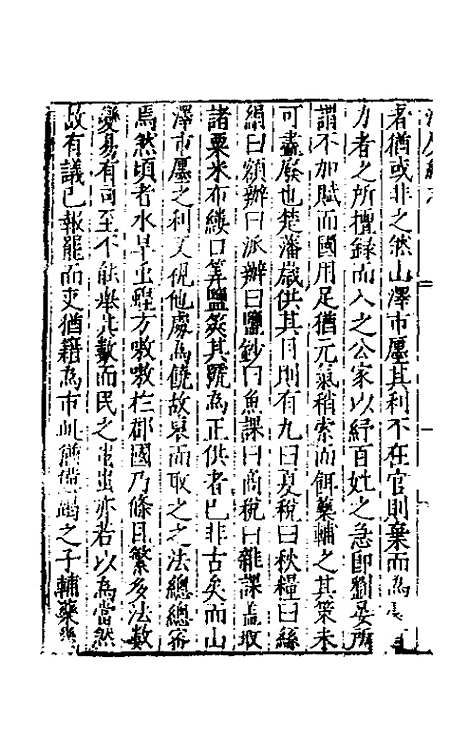 者猶或非之然山澤市廛其利不在官則棄而為
力者之所擅錄而入之公家以紓百姓之急即劉晏所
謂不加賦而國用足猶元氣稍索而餌藥輔之其策未
可盡廢也楚藩歲供其目則有九曰夏稅曰秋糧曰絲
絹曰額辦曰派辦曰鹽鈔曰魚課曰商稅曰雜課蓋取
諸粟米布縷口算鹽筴其號為正供者已非古矣而山
澤市廛之利又視他處為饒故裒而取之之法總總密
焉然頃者水旱虫螟方嗷嗷在郡國乃條目繁多法數
變易有司至不能舉其數而民之蚩蚩亦若以為當然
故有議已報罷而吏猶藉為市之子輔藥